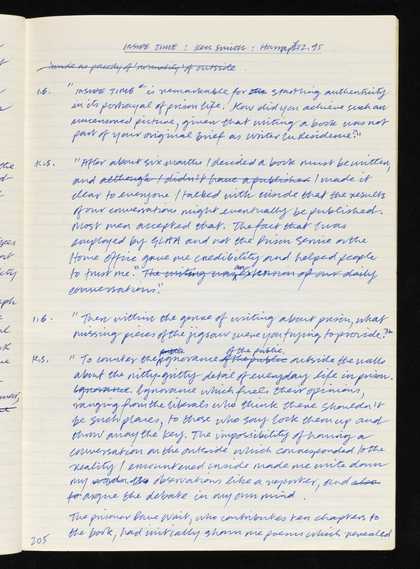 INSIDE TIME : Ken Smith : Harrap £12.95
I.S. "INSIDE TIME" is remarkable for the startling authenticity
in its portrayal of prison life. How did you achieve such an
uncensored picture, given that writing a book was not
part of your original brief as Writer in Residence?"
K.S. "After about six months I decided a book must be written,
and although I didn't have a published I made it
clear to everyone I talked with inside that the results
of our conversations might eventually be published.
Most men accepted that. The fact that I was
employed by GLAA and not the Prison Service or the
Home Office gave me credibility and helped people
to trust me." The writing was an extension of our daily
conversations."
I.S. "Then within the genre of writing about prison, what
missing pieces of the jigsaw were you trying to provide?"
K.S. "To counter the public ignorance of the public outside the walls
about the nitty-gritty detail of everyday life in prison.
Ignorance. Ignorance which fuels their opinions,
ranging from the liberals who think there shouldn't
be such places, to those who say lock them up and
throw away the key. The impossibility of having a
conversation on the outside which corresponded to the
reality I encountered inside made me write down
my observations like a reporter, and also
to argue the debate in my own mind.
The prisoner Dave Wait, who contributes ten chapters to
the book, had initially shown me poems which revealed
205